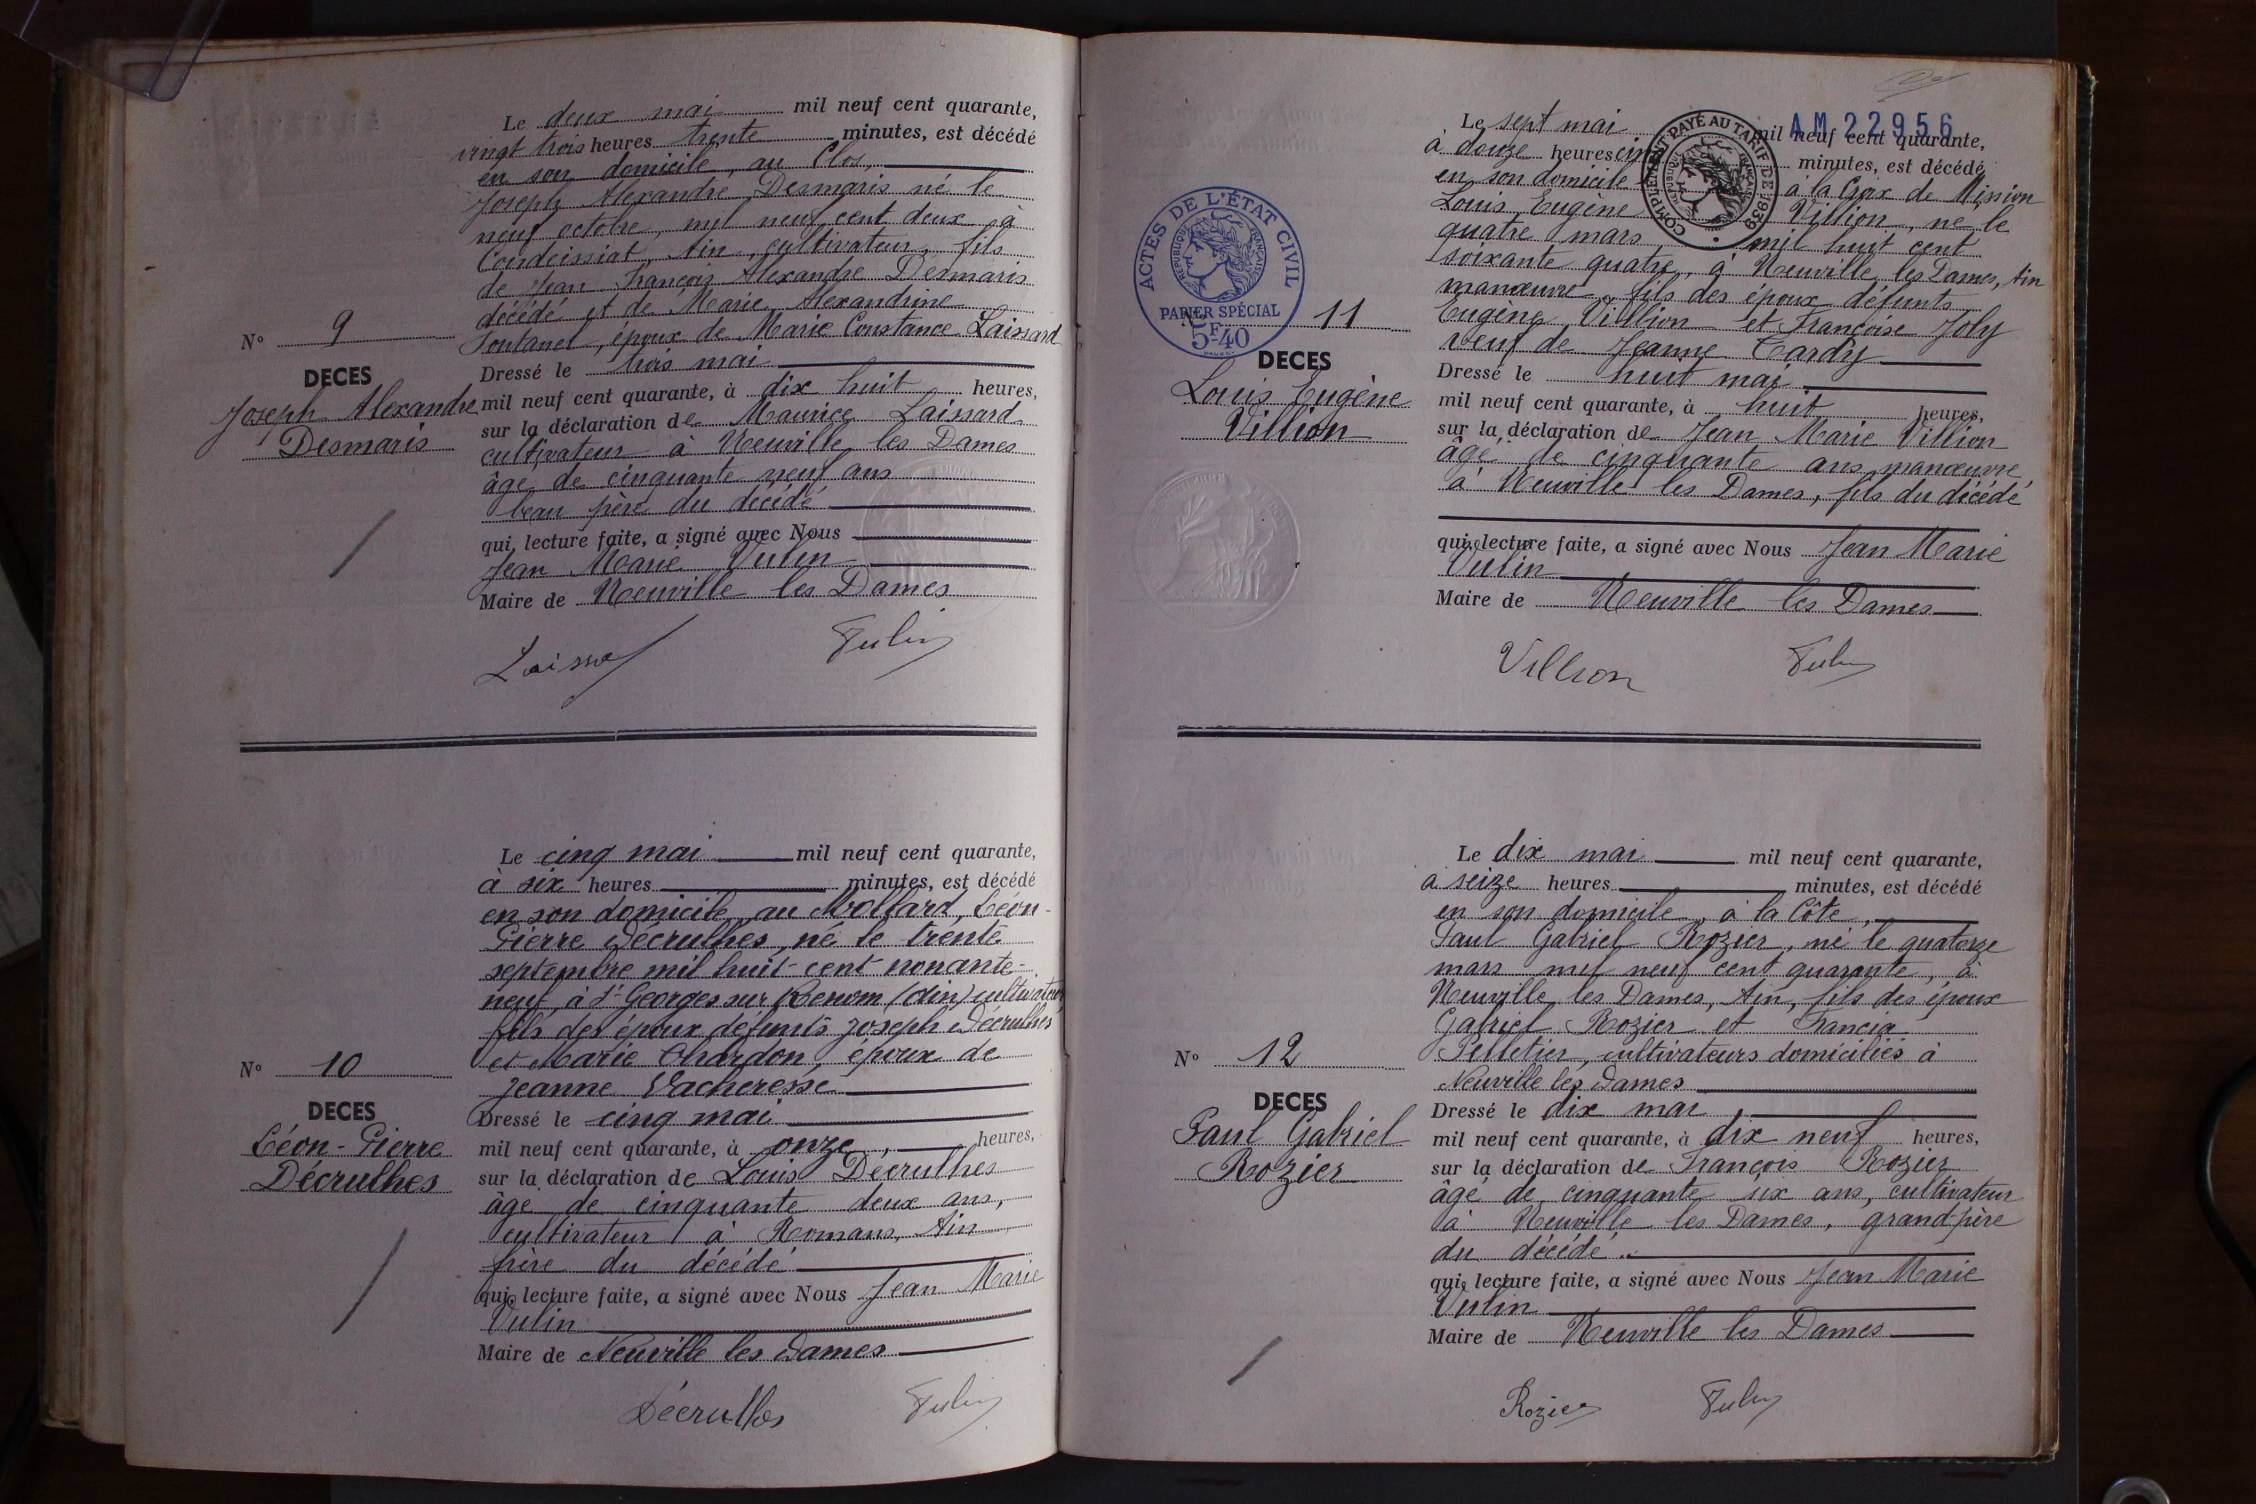 Le deux mai mil neuf cent quarante,
vingt trois heures trente minutes, est décédé
en son domicile, au Clos,
Joseph Alexandre Desmaris né le
neuf octobre mil neuf cent deux à
Condeissiat, Ain, cultivateur, fils
de Jean François Alexandre Desmaris
décédé et de Marie Alexandrine
Fontanel, époux de Marie Constance Laissard
N° 9
DECES
Joseph Alexandre
Desmaris
Dressé le trois mai
mil neuf cent quarante, à dix huit heures,
sur la déclaration de Maurice Laissard
cultivateur à Neuville les Dames
âgé de cinquante neuf ans
beau père du décédé
qui, lecture faite, a signé avec Nous
Jean Marie Vulin
Maire de Neuville les Dames
Vulin
Le cinq mai mil neuf cent quarante,
à six heures minutes, est décédé
en son domicile, au Mollard, Léon-
Pierre Décrulhes, né le trente
septembre mil huit cent nonante-
neuf à St Georges sur Renom (Ain) cultivateur
fils des époux défunts Joseph Décrulhes
et Marie Chardon, époux de
Jeanne Vacheresse
N° 10
DECES
Léon-Pierre
Décrulhes
Dressé le cinq mai
mil neuf cent quarante, à onze heures,
sur la déclaration de Louis Décrulhes
âgé de cinquante deux ans,
cultivateur à Romans, Ain
frère du décédé
qui, lecture faite, a signé avec Nous Jean Marie
Vulin
Maire de Neuville les Dames
Décrulhes Vulin
AM 22956
COMPLÉMENT PAYÉ AU TARIF DE 1939
RÉPUBLIQUE FRANÇAISE
Le sept mai mil neuf cent quarante,
à douze heures cinq minutes, est décédé
en son domicile à la Croix de Mission
Louis Eugène Villion, né le
quatre mars mil huit cent
soixante quatre, à Neuville les Dames, Ain
manœuvre, fils des époux défunts
Eugène Villion et Françoise Joly
veuf de Jeanne Tardy
ACTES DE L'ÉTAT CIVIL
RÉPUBLIQUE FRANÇAISE
PAPIER SPÉCIAL
5F40
11
DECES
Louis Eugène
Villion
Dressé le huit mai
mil neuf cent quarante, à huit heures,
sur la déclaration de Jean Marie Villion
âgé de cinquante ans, manœuvre
à Neuville les Dames, fils du décédé
qui, lecture faite, a signé avec Nous Jean Marie
Vulin
Maire de Neuville les Dames
Villion Vulin
Le dix mai mil neuf cent quarante,
à seize heures minutes, est décédé
en son domicile, à la Côte,
Paul Gabriel Rozier, né le quatorze
mars mil neuf cent quarante, à
Neuville les Dames, Ain, fils des époux
Gabriel Rozier et Francia
Pelletier, cultivateurs domiciliés à
Neuville les Dames
N° 12
DECES
Paul Gabriel
Rozier
Dressé le dix mai
mil neuf cent quarante, à dix neuf heures,
sur la déclaration de François Rozier
âgé de cinquante six ans, cultivateur
à Neuville les Dames, grand père
du décédé
qui, lecture faite, a signé avec Nous Jean Marie
Vulin
Maire de Neuville les Dames
Rozier Vulin